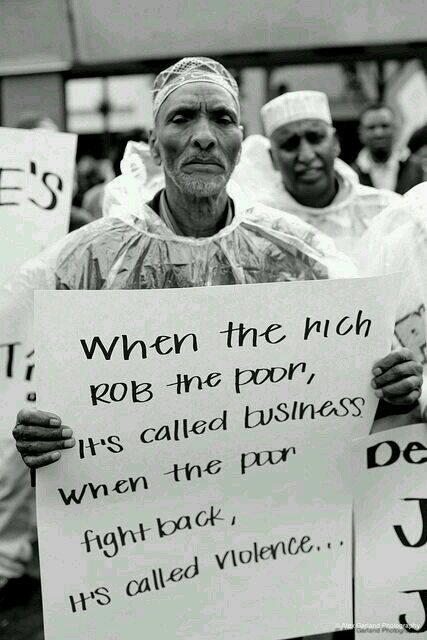 E'S
When the rich
ROB the poor,
it's called business.
When the poor
fight back,
it's called violence...
De
J
J
© Alex Garland Photography